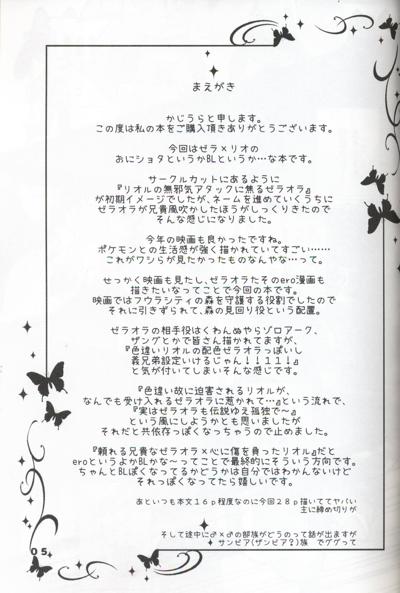 まえがき
かじうらと申します。
この度は私の本をご購入頂きありがとうございます。
今回はゼラ×リオの
おにショタというかBLというか…な本です。
サークルカットにあるように
『リオルの無邪気アタックに焦るゼラオラ』
が初期イメージでしたが、ネームを進めていくうちに
ゼラオラが兄貴風吹かしたほうがしっくりきたので
そんな感じになりました。
今年の映画も良かったですね。
ポケモンとの生活感が強く描かれていてすごい……
これがワシらが見たかったものなんやな…って。
せっかく映画も見たし、ゼラオラたそのero漫画も
描きたいなってことで今回の本です。
映画ではフウラシティの森を守護する役割でしたので
それに引きずられて、森の見回り役という配置。
ゼラオラの相手役はくわんぬやらゾロアーク、
ザングとかで皆さん描かれてますが、
『色違いリオルの配色ゼラオラっぽいし
義兄弟設定いけるじゃん！！１１！』
と気が付いてしまいそんな感じです。
『色違い故に迫害されるリオルが、
なんでも受け入れるゼラオラに惹かれて…』という流れで、
『実はゼラオラも伝説ゆえ孤独で～』
という風にしようかとも思いましたが
それだと共依存っぽくなっちゃうので止めました。
『頼れる兄貴なゼラオラ×心に傷を負ったリオル』だと
eroというよかBLかな～ってことで最終的にそういう方向です。
ちゃんとBLぽくなってるかどうかは自分ではわかんないけど
それっぽくなってたら嬉しいです。
あといつも本文１６ｐ程度なのに今回２８ｐ描いててヤバい
主に締め切りが
そして途中に♂×♂の部族がどうのって話が出ますが
サンビア(ザンビア？)族 でググって
05